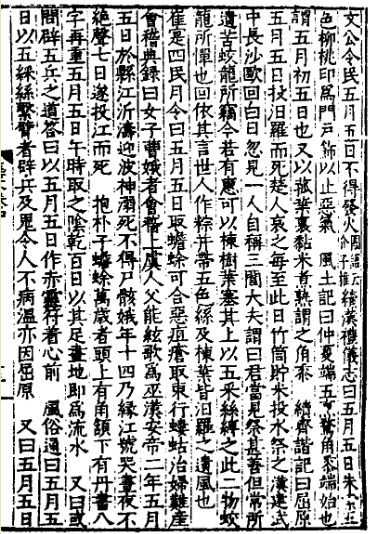 文公令民五月五日不得發火國語云介子推續漢禮儀志曰五月五日朱五
色柳桃印爲門戶飾以止惡氣 風土記曰仲夏端五烹鶩角黍端始也
謂五月初五日也又以菰葉裹黏米煮熟謂之角黍 續齊諧記曰屈原
五月五日投汨羅而死楚人哀之每至此日竹筒貯米投水祭之漢建武
中長沙歐回白日忽見一人自稱三閭大夫謂曰君當見祭甚善但常所
遺苦蛟龍所竊今若有惠可以楝樹葉塞其上以五采絲縛之此二物蛟
龍所憚也回依其言世人作粽并帶五色絲及楝葉皆汨羅之遺風也
崔寔四民月令曰五月五日取蟾蜍可合惡疽瘡取東行螻蛄治婦難産
會稽典錄曰女子曹娥者會稽上虞人父能絃歌爲巫漢安帝二年五月
五日於縣江泝濤迎波神溺死不得尸骸娥年十四乃緣江號哭晝夜不
絶聲七日遂投江而死 抱朴子蟾蜍萬歲者頭上有角頷下有丹書八
字再重五月五日午時取之陰乾百日以其足畫地即爲流水 又曰或
問辟五兵之道荅曰以五月五日作赤靈符著心前 風俗通曰五月五
日以五綵絲繫臂者辟兵及鬼令人不病溫亦因屈原 又曰五月五日